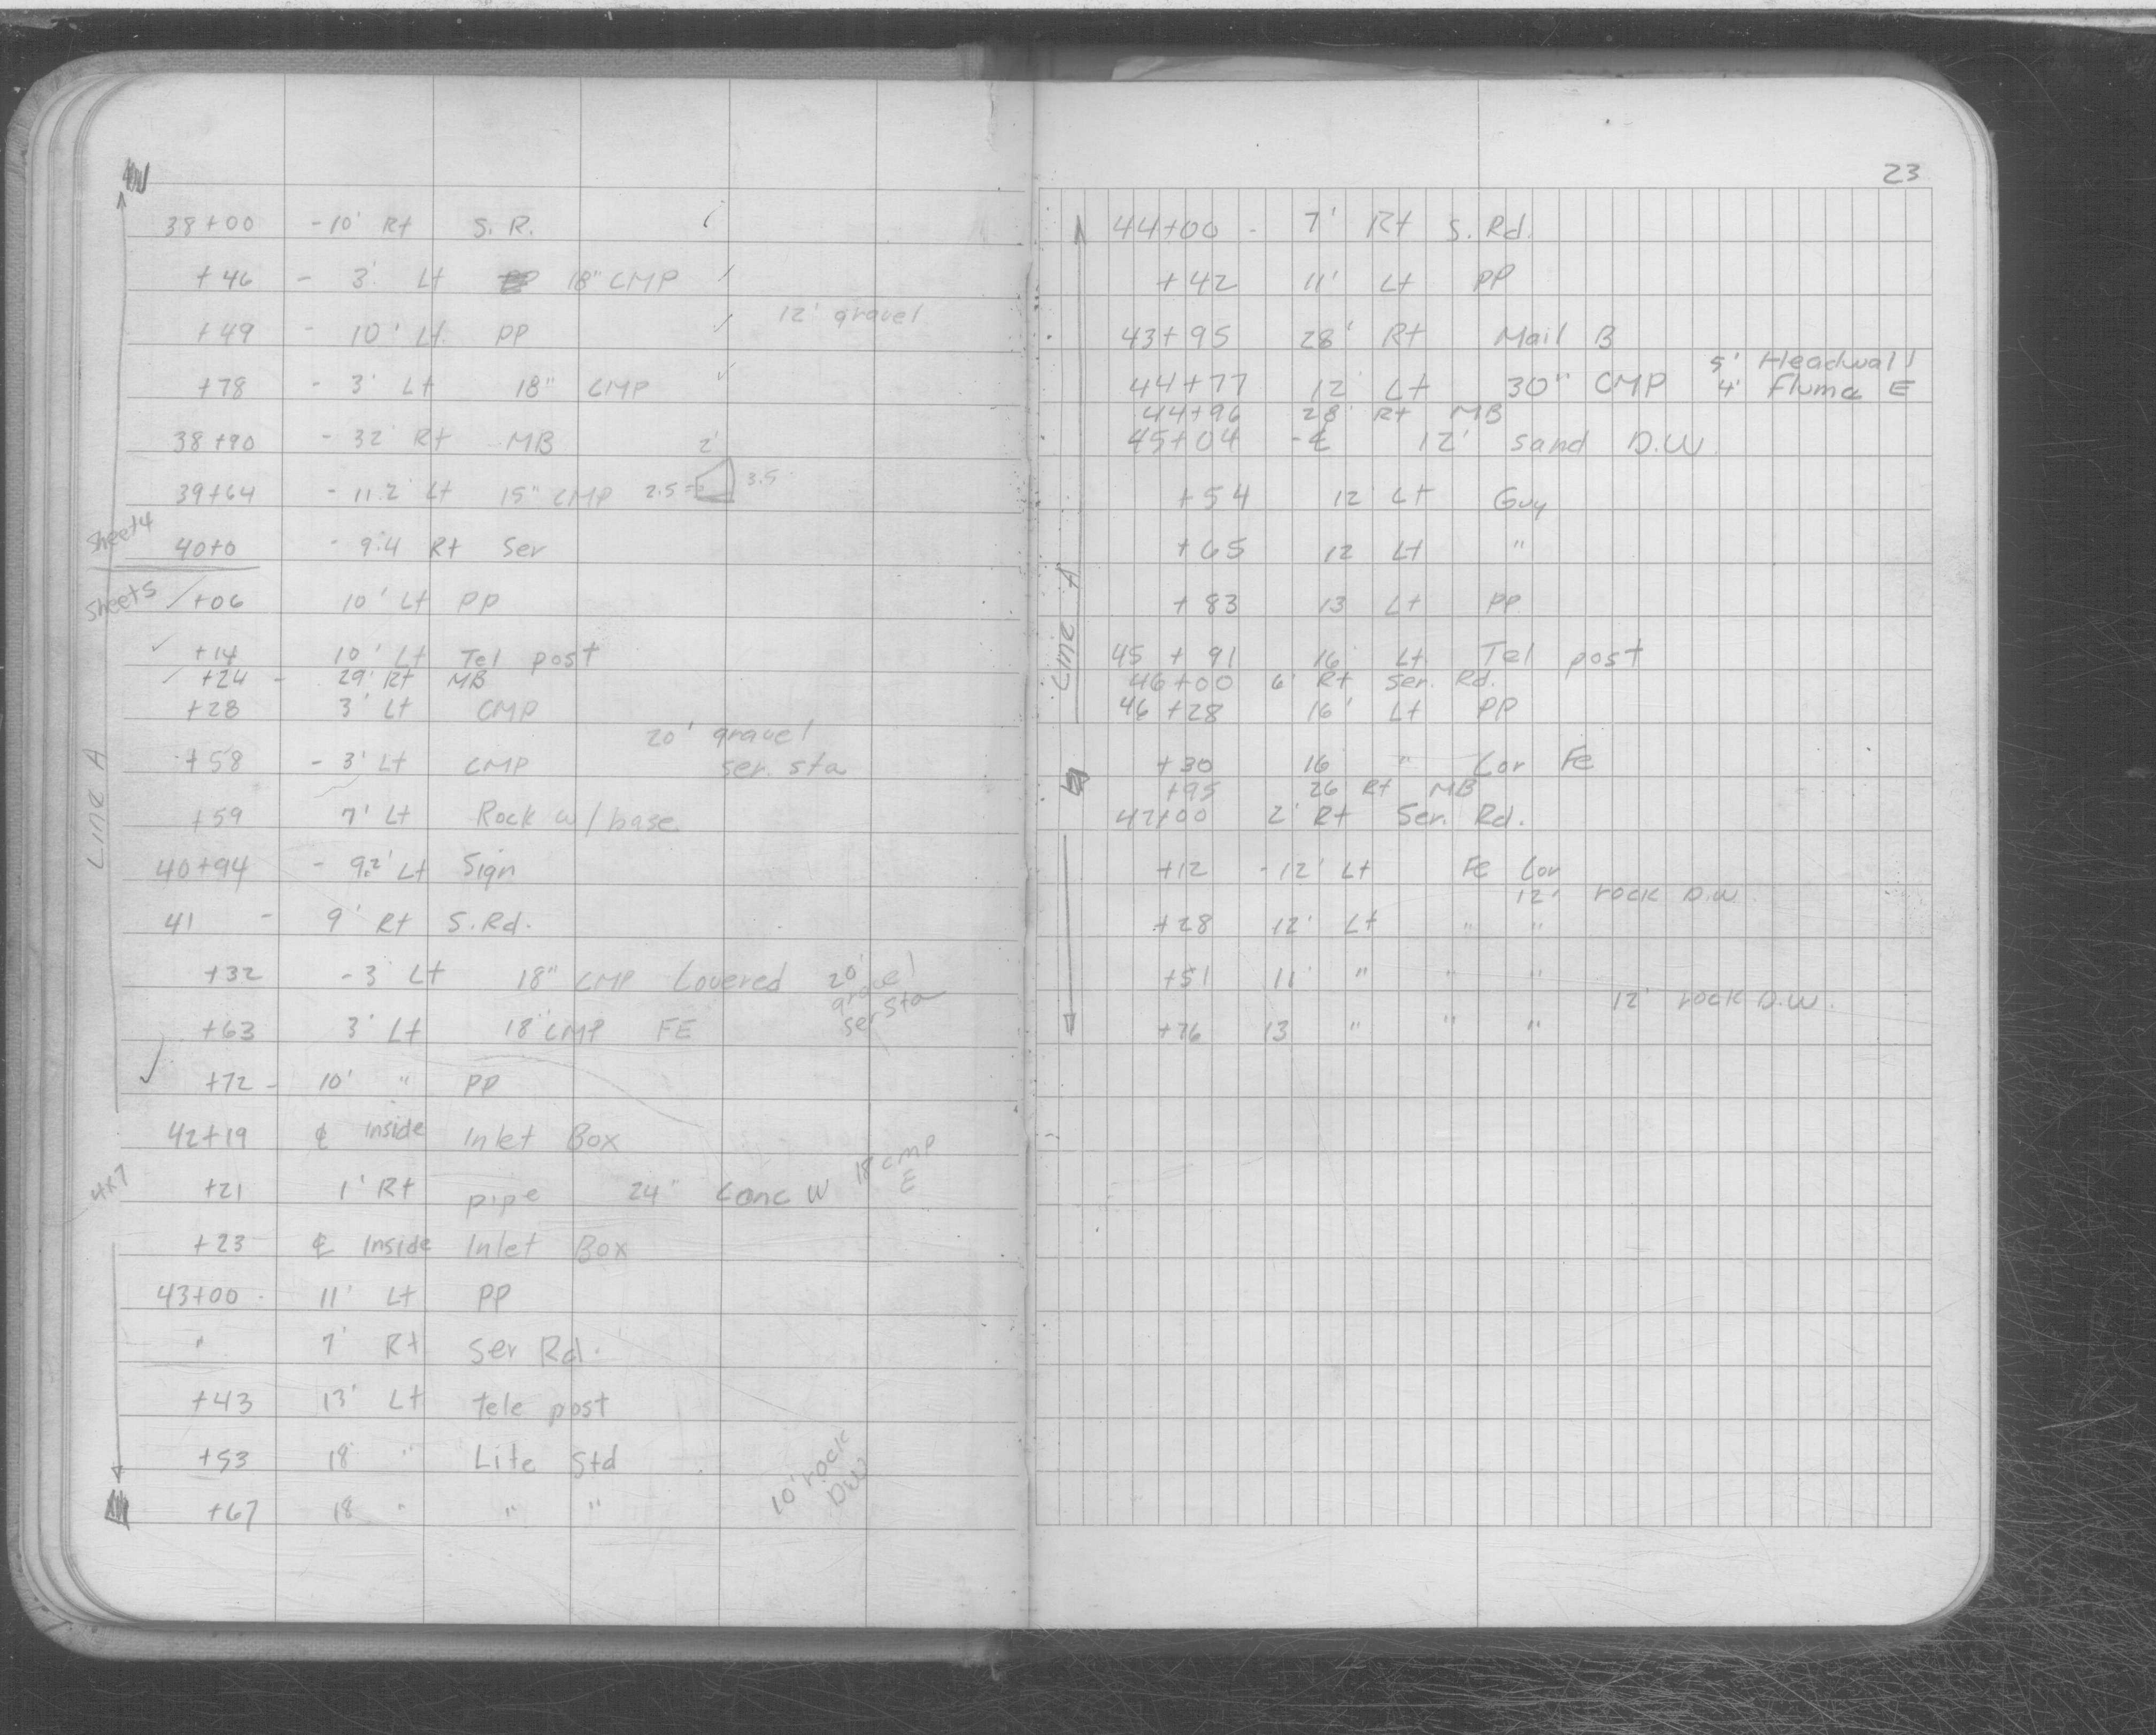 38+00 - 10' Rt S. R.
+46 - 3' Lt 18" CMP
12' gravel
+49 - 10' Lt PP
+78 - 3' Lt 18" CMP
38+90 - 32' Rt MB
2'
39+64 - 11.2' Lt 15" CMP 2.5 3.5
Sheet 4
40+0 - 9.4 Rt Ser
Sheet 5
+06 10' Lt PP
+14 10' Lt Tel post
+24 - 29' Rt MB
+28 3' Lt CMP
20' gravel
+58 - 3' Lt CMP ser. sta
LINE A
+59 7' Lt Rock w/base
40+94 - 9.2' Lt Sign
41 - 9' Rt S.Rd.
+32 - 3' Lt 18" CMP Covered 20' gravel
ser sta
+63 3' Lt 18" CMP FE
+72 - 10' " PP
42+19 ℄ inside Inlet Box
4x7
+21 1' Rt pipe 24" Conc W 18 CMP
E
+23 ℄ Inside Inlet Box
43+00 - 11' Lt PP
" 7' Rt Ser Rd.
+43 13' Lt tele post
+53 18 " Lite Std
10' rock
DW
+67 18 " " "
23
44+00 - 7' Rt S. Rd.
+42 11' Lt PP
43+95 28' Rt Mail B
5' Headwall
44+77 12' Lt 30" CMP 4' Flume E
44+96 28' Rt MB
45+04 - ℄ 12' sand D.W.
+54 12' Lt Guy
+65 12 Lt "
+83 13 Lt PP
LINE A
45+91 16' Lt Tel post
46+00 6' Rt Ser. Rd.
46+28 16' Lt PP
+30 16 " Cor Fe
+95 26 Rt MB
47+00 2' Rt Ser. Rd.
+12 - 12' Lt Fe Cor
12' rock D.W.
+28 12' Lt " "
+51 11' " " "
12' rock D.W.
+76 13 " " "